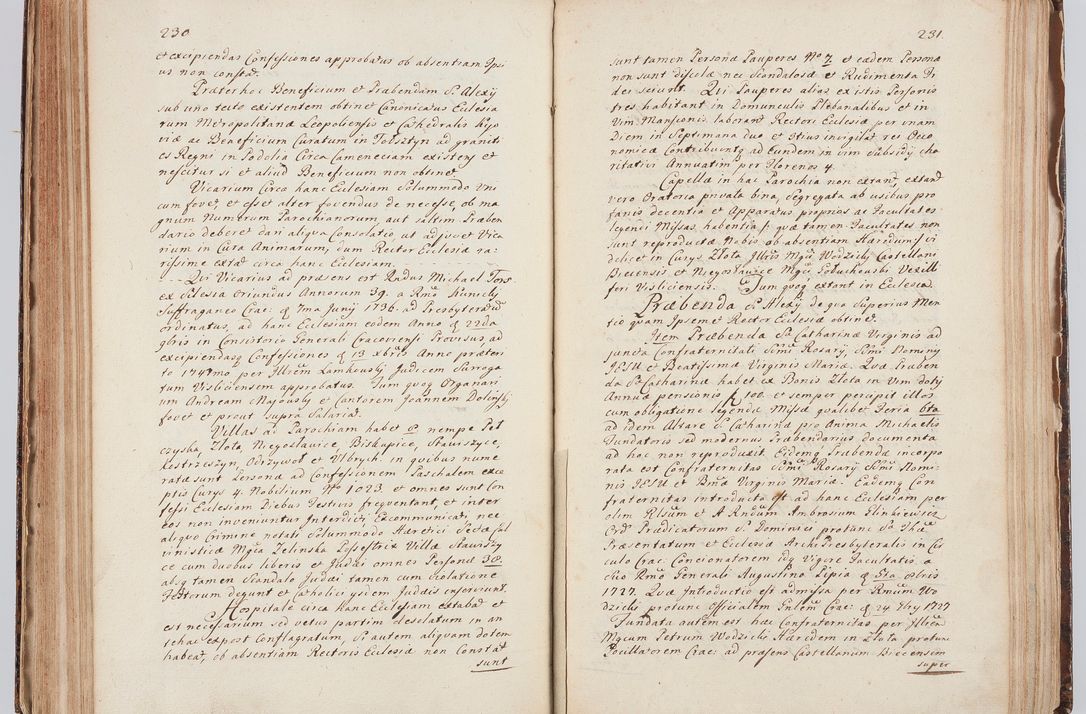 230
et excipiendas Confessiones approbatus ob absentiam Ipsi
us non constat.
Præter hoc Beneficium et Præbendam S. Alexÿ
sub uno tecto existentem obtinet Canonicatus Ecclesia
rum Metropolitanæ Leopoliensis et Cathedralis Kijo
viæ ac Beneficium Curatum in Tolsztyn ad graniti
es Regni in Podolia Circa Cameneciam existens et
nescitur si et aliud Beneficium non obtinet
Vicarium Circa hanc Ecclesiam Solummodo Vni
cum fovet, et esset alter fovendus de necesse, ob ma
gnum Numerum Parochianorum, aut saltim Præben
dario deberet dari aliqua Consolatio ut adjuvet Vica
rium in Cura Animarum, dum Rector Ecclesiæ ra
rissime extat circa hanc Ecclesiam.
Qui Vicarius ad præsens est Rndus Michael Tors
ex Silesia Oriundus Annorum 39. a Rmo Kunicky
Suffraganeo Crac: d Ima Junÿ 1736. ad Presbyteratu
ordinatus, ad hanc Ecclesiam eodem Anno d 22da
gbris in Consistorio Generali Cracoviensi Provisus, ad
excipiendasq Confessiones d 13 xbris Anno præteri
to 1747mo per Illrem Lamkousky Judicem Surroga
tum Visliciensem approbatus. Tum quoq Organari
um Andream Majousky et Cantorem Joannem Dolinsky
fovet et prout supra Salariat.
Villas ad Parochiam habet 8 nempe Pel
czyska, Złota, Niegosławice, Biskupice, Stawiszyce,
Kostrzeszyn, Odrzywoł et Vlbrych. in quibus nume
ratæ sunt Personæ ad Confessionem Paschalem exce
ptis Curys 4. Nobilium No 1023. et omnes sunt Con
fessi Ecclesiam Diebus Festivis frequentant, et inter
eos non inveniuntur Interdicti, Excommunicati, nec
aliquo Crimine notati Solummodo Hæretici Sectæ Cal
vinisticæ Mgca Zelinska Possestrix Villæ Stawiszy
ce cum duobus liberis et Judæi omnes Personæ 38.
absq tamen Scandalo Judæi tamen cum Violatione
Festorum degunt et Catholici ipsiem Judæis inserviunt.
Hospitale circa hanc Ecclesiam extabat et
est necessarium sed vetus partim deselatum in an
te hac ex post Conflagratum, Si autem aliquam dotem
habeat, ob absentiam Rectoris Ecclesiæ non Constat
sunt
231.
sunt tamen Personæ Pauperes No 7 et eædem Personæ
non sunt discolæ nec Scandalosæ et Rudimenta Fi
dei sciunt. Qui Pauperes alias ex istis Personis
tres habitant in Domunculis Plebanalibus et in
Vim Mansionis laborant Rectori Ecclesiæ per unam
Diem in Septimana duo et Ostius invigilat res Oeco
nomicæ Contribuunty ad Eundem in vim subsidÿ cha
ritativi Annuatim per Florenos 4.
Capellæ in hac Parochia non extant, extant
vero Oratoria privata bina, Segregata ab usibus pro
fanis decentia et Apparatus proprios ac Facultates
legendi Missas habentia /: quæ tamen Facultates non
sunt reproductæ Nobis ob absentiam Hæredum :/ vi
delicet in Curys Złota Illris Mgci Wodzicky Castellani
Biecensis, et Niegosławice Mgci Goluchousky Vexill
feri Visliciensis. Tum quoq extant in Ecclesia.
Præbenda S. Alexÿ de qua Superius Men
tio quam Ipsemet Rector Ecclesiæ obtinet.
Item Præbenda Sæ Catharinæ Virginis ad
juncta Confraternitati Ssmi Rosary, Ssmi Nominis
JESU et Beatissimæ Virginis Mariæ. Quæ Præben
da Sæ Catharinæ habet ex Bonis Złota in Vim dotis
Annuæ pensionis f 100. et semper percipit illos
cum obligatione legendæ Missæ qualibet Feria 6ta
ad idem Altare S. Catharinæ pro Anima Michaelis
Fundatoris sed modernus Præbendarius documenta
ad hoc non reproduxit. Eidemq Præbendæ incorpo
rata est Confraternitas Ssmi Rosary Ssmi Nomi
nis JESU et Bmæ Virginis Mariæ. Eademq Con
fraternitas introducta est ad hanc Ecclesiam per
olim Rlsum et A Rndum Ambrosium Glinkiewicz
Ord Prædicatorum S. Dominici protunc S. Thæ
Præsentatum et Ecclesiæ Archi Presbyteralis in Cir
culo Crac. Concionatorem idq Vigore Facultatis a
suo Rmo Generali Augustino Pipia d 5ta 8bris
1727. Quæ Introductio est admissa per Rmum Wo
dzicki protunc Officialem Gnlem Crac: d 24 9bry 1727
Fundata autem est hæc Confraternitas per Illrem
Mgcum Petrum Wodzicki Hæredem in Złota protunc
Pocillatorem Crac: ad præsens Castellanum Biecensem
super